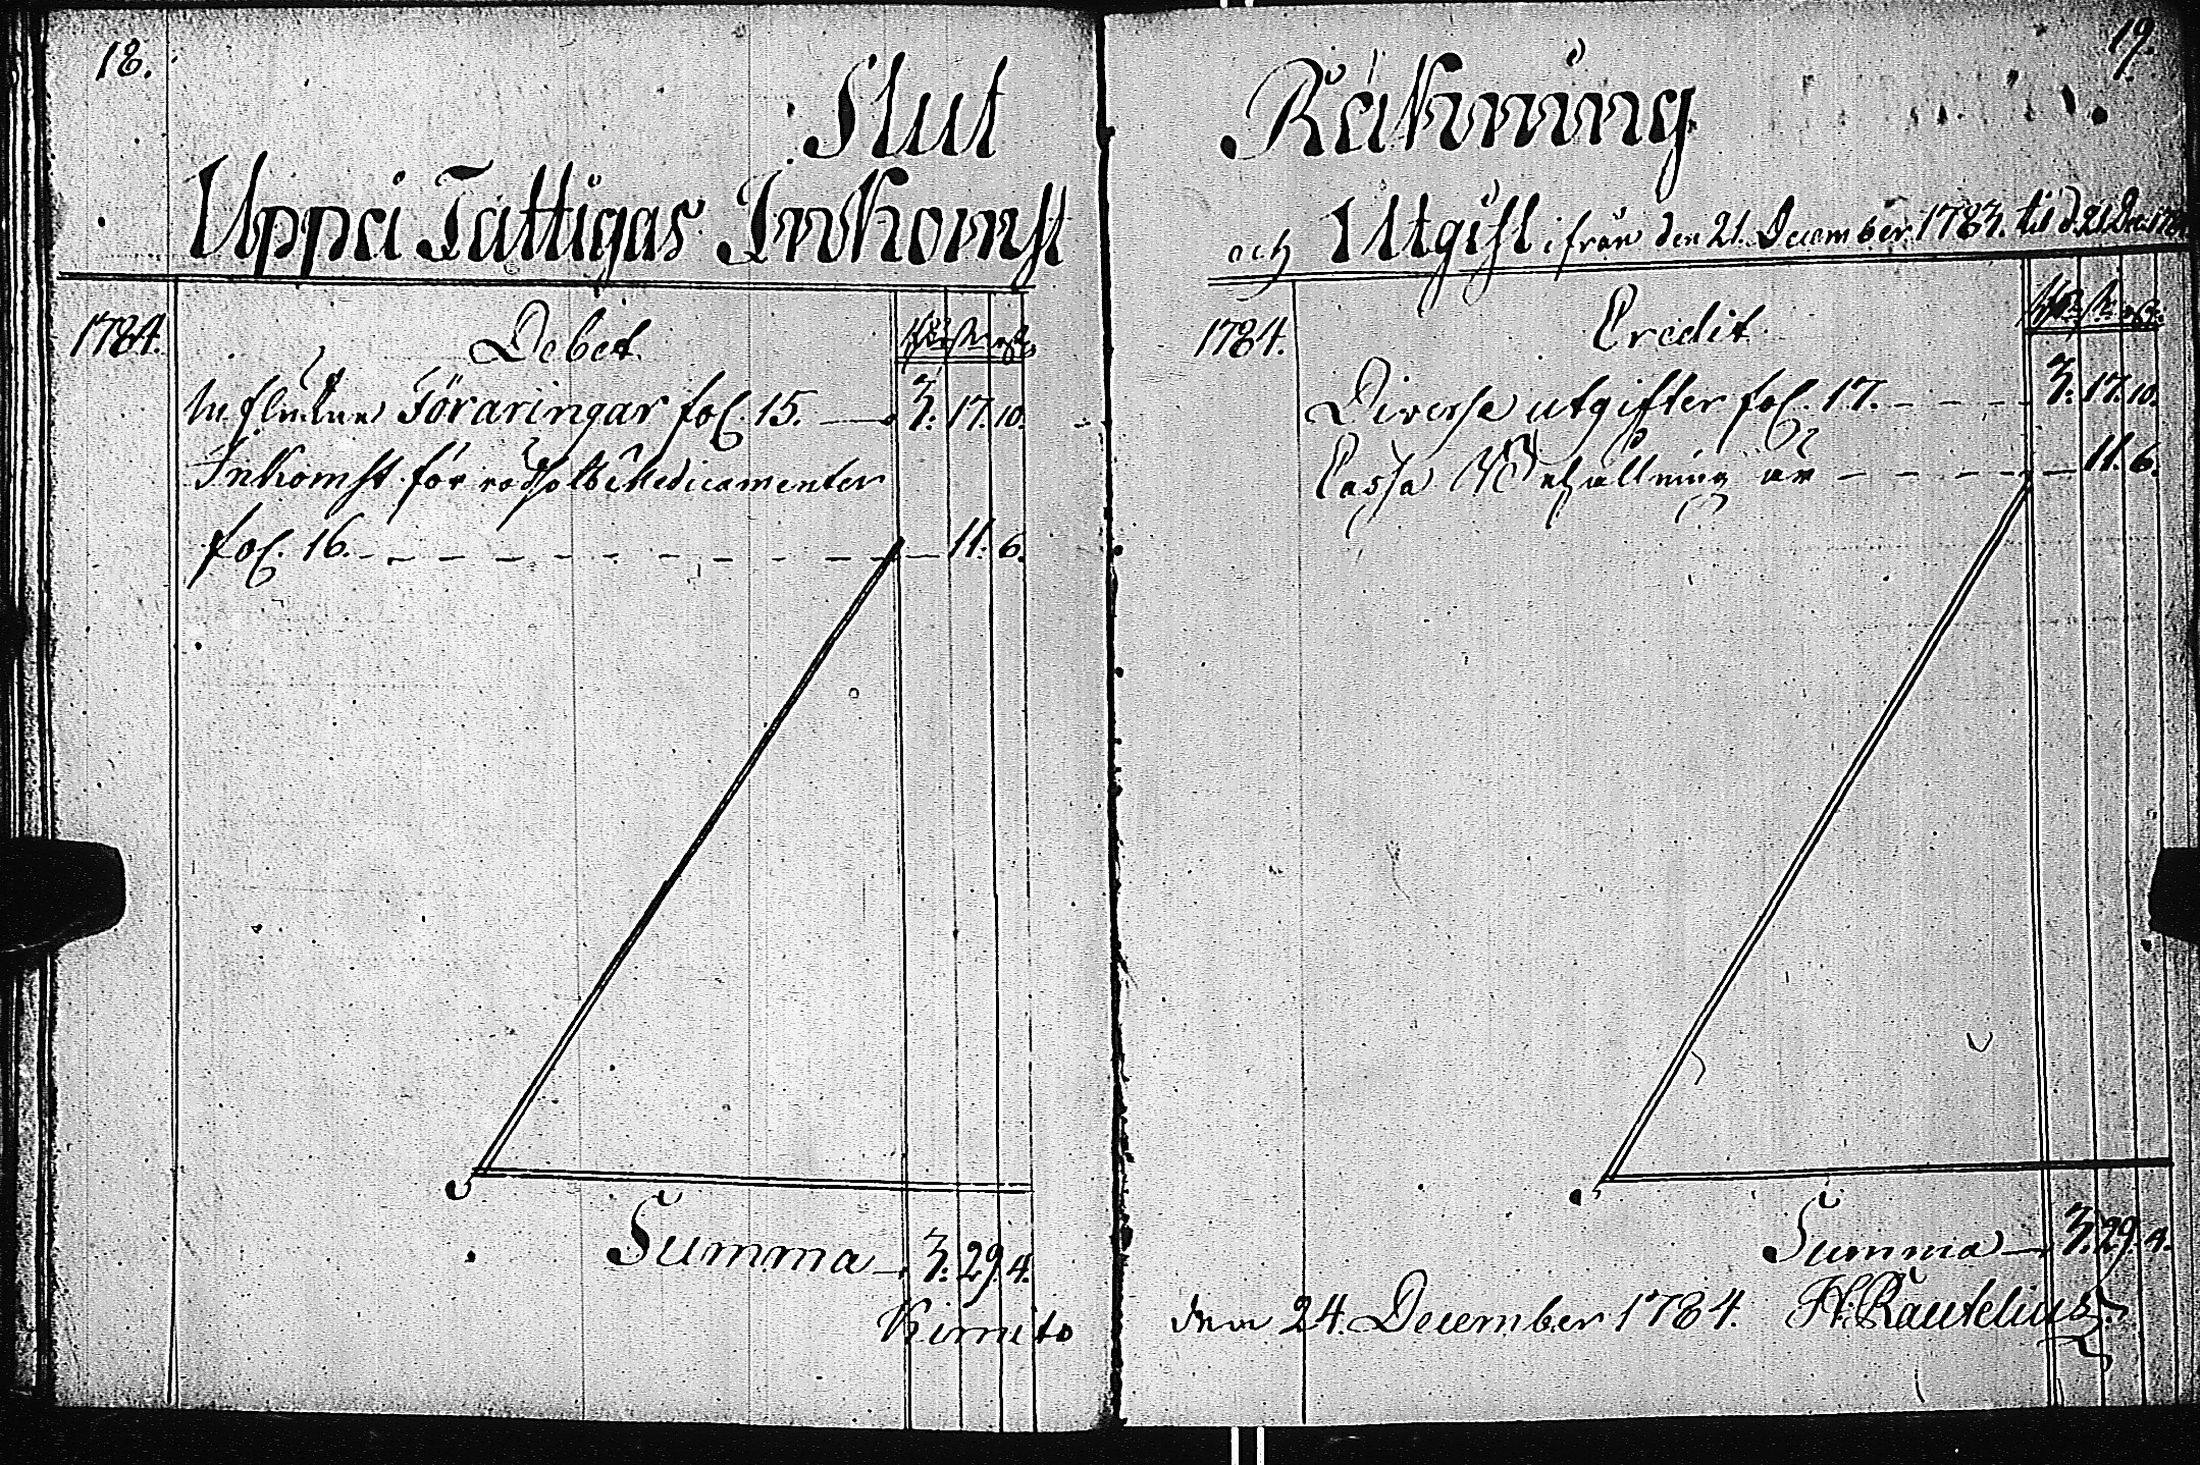 18.
Slut
Uppå Fattigas Inkomst
1784. Debet Rd. s. rs.
Influtne Föraringar fol. 15. 3. 17. 10.
Inkomst för Medicamenter
fol. 16. 11. 6.
Summa 3. 29. 4.
Kimito
19.
Räkning
och Utgift ifrån den 21. December 1783. til d. 21 Dec.
1784. Credit
Diverse utgifter fol. 17. 3. 17. 10.
Cassa Behållning är 11. 6.
Summa 3. 29. 4.
den 24. December 1784. H. Rautelius